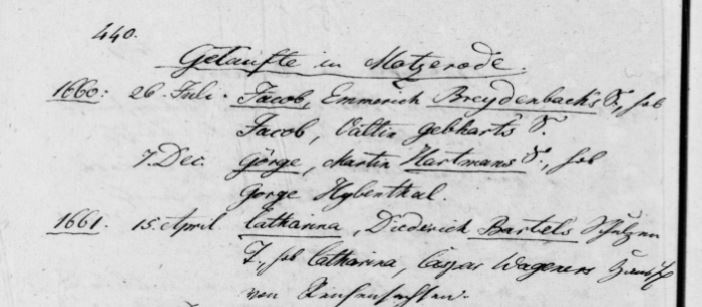 440.
Getaufte in Motzerode.
1660: 26. Juli. Jacob, Emmerich Breydenbach's S., sub
Jacob, Valtin Gebharts S.
7. Dec. Görge, Martin Hartmans S., sub
Görge Hybenthal.
1661. 15. April. Catharina, Diederich Bartels
T., sub Catharina, Caspar Wageners
von Reichensachsen.